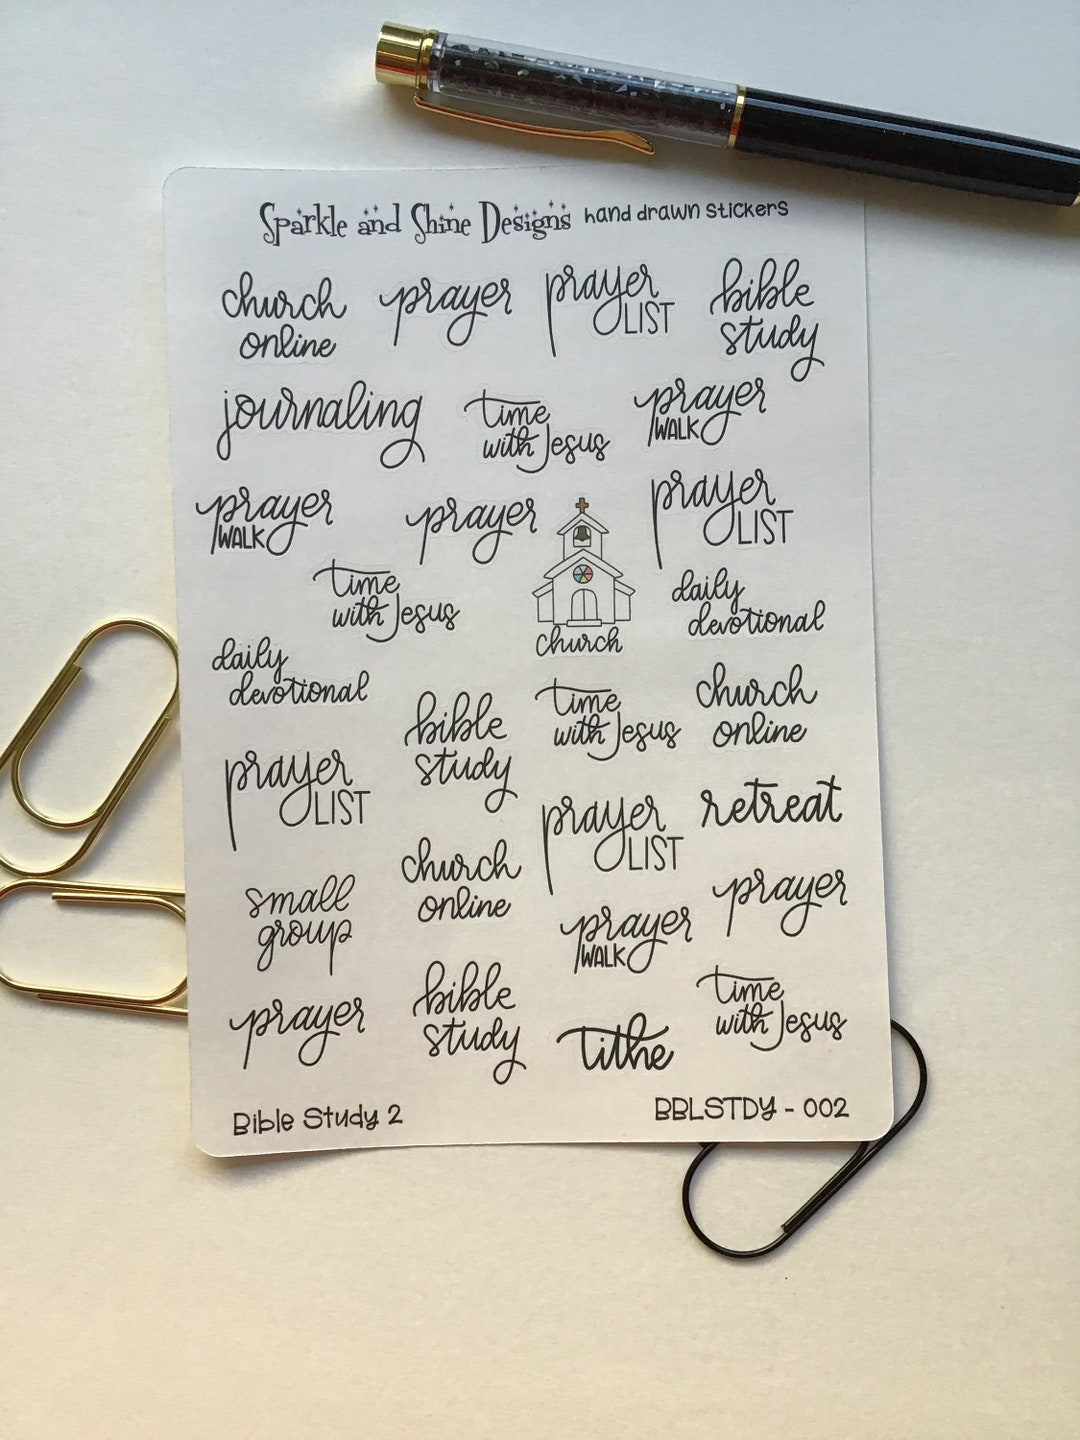 Sparkle and Shine Designs hand drawn stickers
church
online
prayer
prayer
LIST
bible
study
journaling
time
with Jesus
prayer
WALK
prayer
WALK
prayer
church
prayer
LIST
time
with Jesus
daily
devotional
daily
devotional
bible
study
time
with Jesus
church
online
prayer
LIST
church
online
prayer
LIST
retreat
small
group
prayer
WALK
prayer
prayer
bible
study
tithe
time
with Jesus
Bible Study 2
BBLSTDY - 002